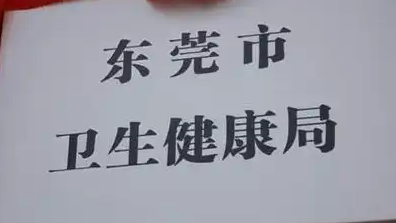 东莞市
卫生健康局